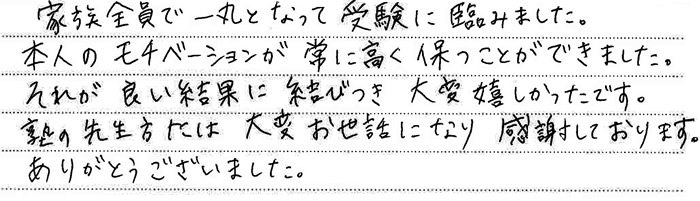 家族全員で一丸となって受験に臨みました。
本人のモチベーションが常に高く保つことができました。
それが良い結果に結びつき大変嬉しかったです。
塾の先生方には大変お世話になり感謝しております。
ありがとうございました。